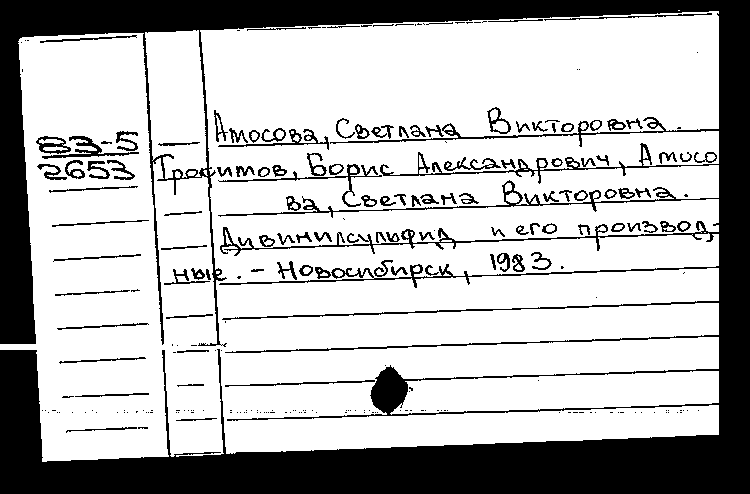 83-5
2653
Амосова, Светлана Викторовна.
Трофимов, Борис Александрович, Амосо
ва, Светлана Викторовна.
Дивинилсульфид и его производ-
ные. – Новосибирск, 1983.